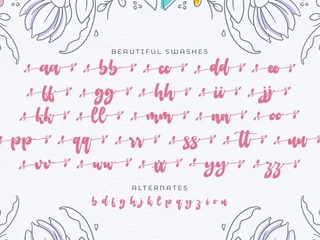 BEAUTIFUL SWASHES
aa bb cc dd ee
ff gg hh ii jj
kk ll mm nn oo
pp qq rr ss tt uu
vv ww xx yy zz
ALTERNATES
b d f g h j k l p y z i o n